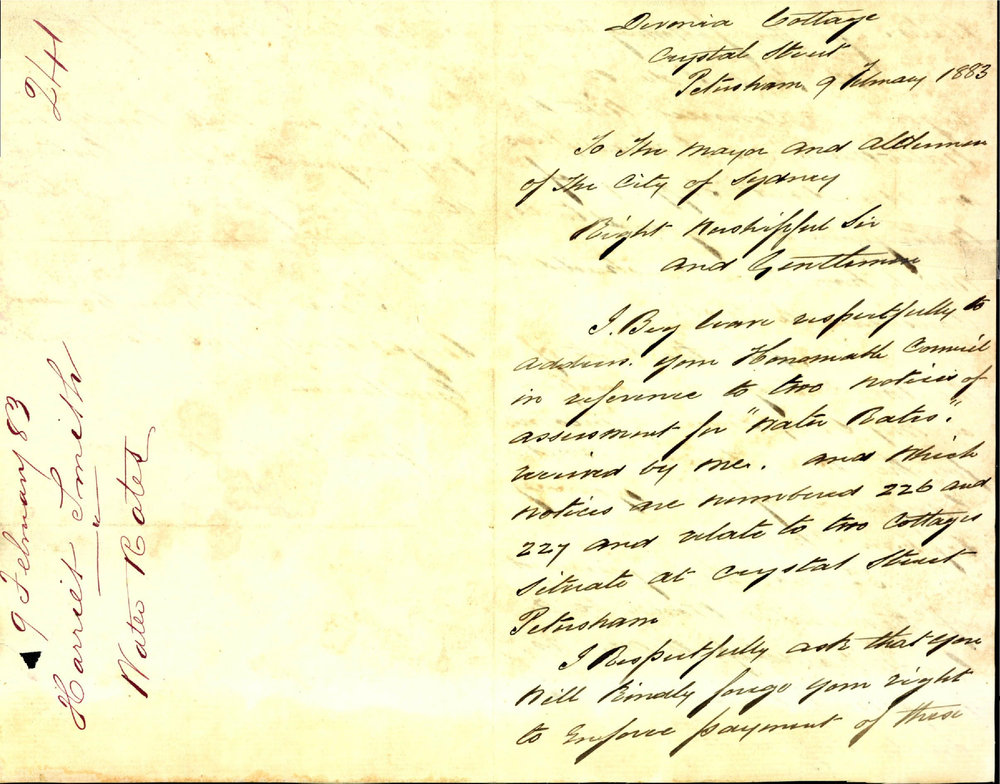 2/41
9 February 83
Harriet Smith
Water Rates
Devonia Cottage
Crystal Street
Petersham 9 February 1883
To The Mayor and Aldermen
of The City of Sydney
Right Worshipful Sir
and Gentlemen
I Beg leave respectfully to
address your Honorable Council
in reference to two notices of
assessment for "Water Rates".
received by me. and which
notices are numbered 226 and
227 and relate to two Cottages
situate at Crystal Street
Petersham
I Respectfully ask that you
will kindly forego your right
to Enforce payment of these